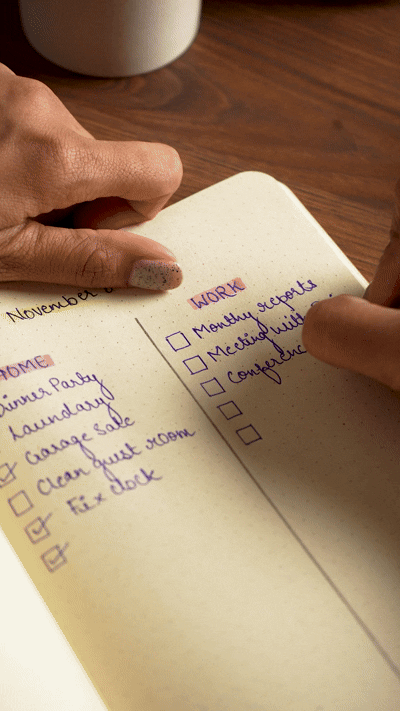 November
HOME
Dinner Party
Laundary
Garage Sale
Clean guest room
Fix clock
WORK
Monthy reports
Meeting with